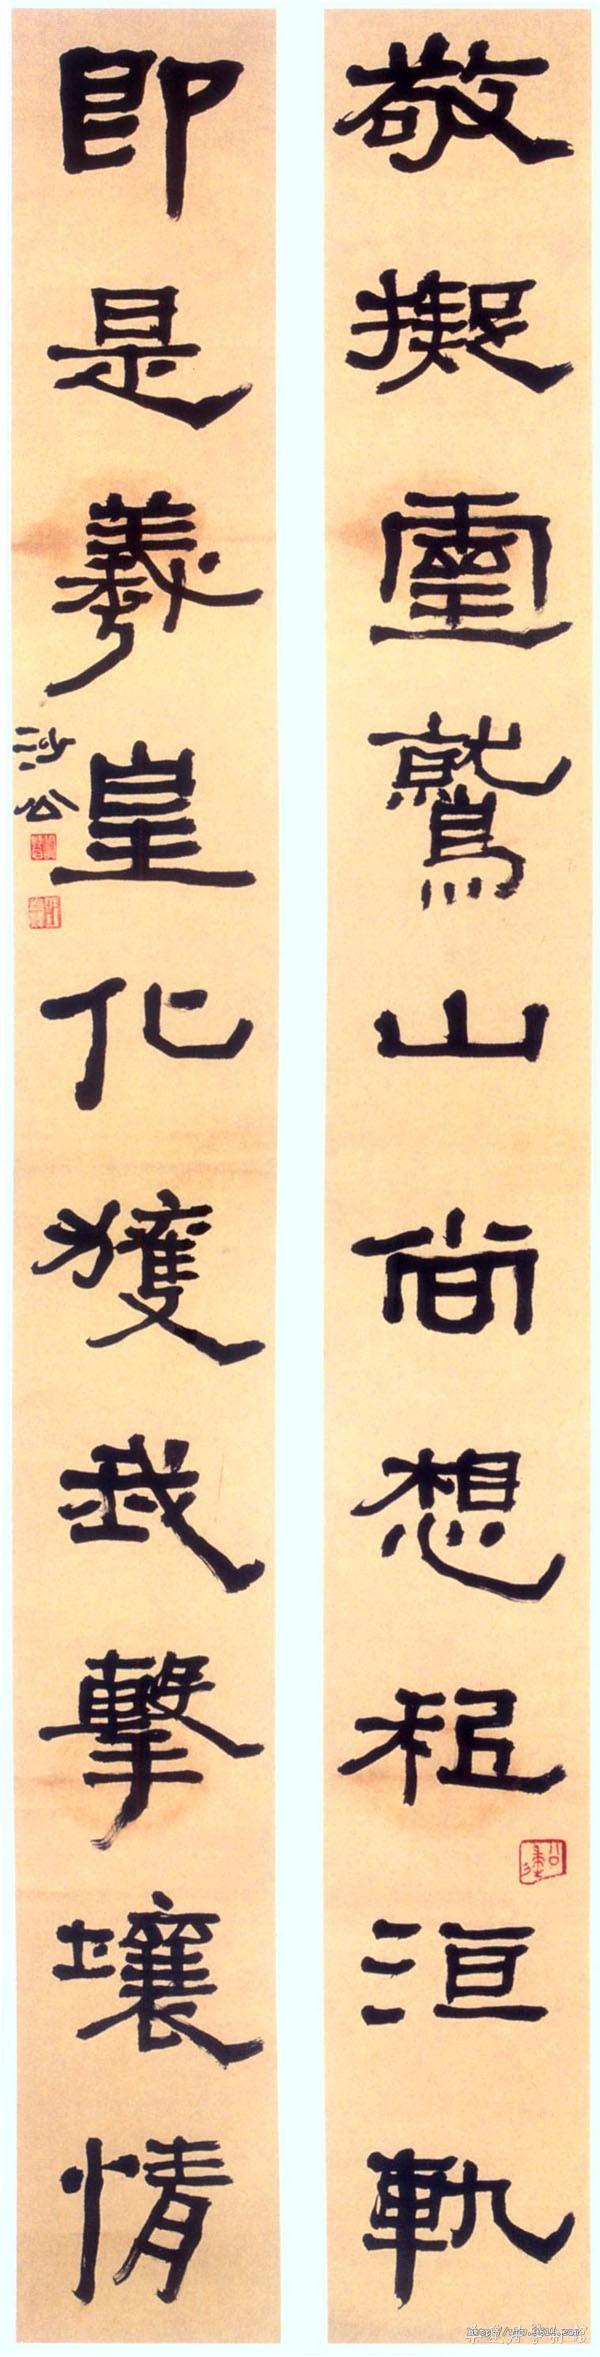 敬擬靈鷲山尚想祗洹軌
即是羲皇化獲我擊壤情
沙公